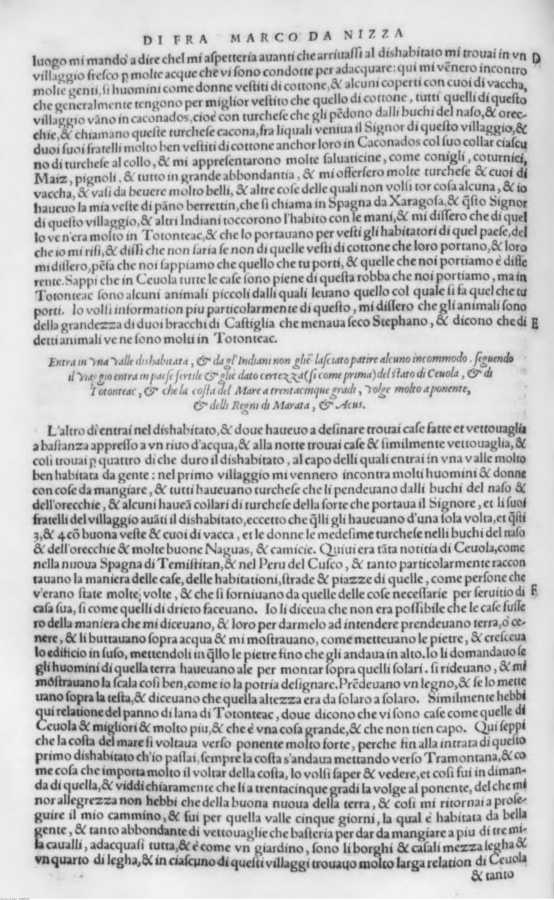 DI FRA MARCO DA NIZZA
luogo mi mandò a dire chel mi aspetteria auanti che arriuassi al dishabitato mi trouai in vn D
villaggio fresco p molte acque che vi sono condotte per adacquare: qui mi vẽnero incontro
molte genti, sì huomini come donne vestiti di cottone, & alcuni coperti con cuoi di vaccha,
che generalmente tengono per miglior vestito che quello di cottone, tutti quelli di questo
villaggio vãno in caconados, cioè con turchese che gli pẽdono dalli buchi del naso, & orec-
chie, & chiamano queste turchese cacona, fra liquali veniua il Signor di questo villaggio, &
duoi suoi fratelli molto ben vestiti di cottone anchor loro in Caconados col suo collar ciascu
no di turchese al collo, & mi appresentarono molte saluaticine, come conigli, coturnici,
Maiz, pignoli, & tutto in grande abbondantia, & mi offersero molte turchese & cuoi di
vaccha, & vasi da beuere molto belli, & altre cose delle quali non volsi tor cosa alcuna, & io
haueuo la mia veste di pãno berrettin, che si chiama in Spagna da Xaragosa, & q̃sto Signor
di questo villaggio, & altri Indiani toccorono l'habito con le mani, & mi dissero che di quel
lo ve n'era molto in Totonteac, & che lo portauano per vesti gli habitatori di quel paese, del
che io mi risi, & dissi che non saria se non di quelle vesti di cottone che loro portano, & loro
mi dissero, pẽsa che noi sappiamo che quello che tu porti, & quelle che noi portiamo è diffe
rente. Sappi che in Ceuola tutte le case sono piene di questa robba che noi portiamo, ma in
Totonteac sono alcuni animali piccoli dalli quali leuano quello col quale si fa quel che tu
porti. Io volsi information piu particolarmente di questo, mi dissero che gli animali sono
della grandezza di duoi bracchi di Castiglia che menaua seco Stephano, & dicono che di E
detti animali ve ne sono molti in Totonteac.
Entra in vna valle dishabitata, & da gl'Indiani non gliè lasciato patire alcuno incommodo. seguendo
il viaggio entra in paese fertile & gliè dato certezza (si come prima) del stato di Ceuola, & di
Totonteac, & che la costa del Mare a trentacinque gradi, volge molto a ponente,
& delli Regni di Marata, & Acus.
L'altro dì entrai nel dishabitato, & doue haueuo a desinare trouai case fatte et vettouaglia
a bastanza appresso a vn riuo d'acqua, & alla notte trouai case & similmente vettouaglia, &
così trouai p quattro dì che duro il dishabitato, al capo delli quali entrai in vna valle molto
ben habitata da gente: nel primo villaggio mi vennero incontra molti huomini & donne
con cose da mangiare, & tutti haueuano turchese che li pendeuano dalli buchi del naso &
dell'orecchie, & alcuni haueã collari di turchese della sorte che portaua il Signore, et li suoi
fratelli del villaggio auãti il dishabitato, eccetto che q̃lli gli haueuano d'una sola volta, et q̃sti
3, & 4 cõ buona veste & cuoi di vacca, et le donne le medesime turchese nelli buchi del naso
& dell'orecchie & molte buone Naguas, & camicie. Quiui era tãta notitia di Ceuola, come
nella nuoua Spagna di Temistitan, & nel Peru del Cusco, & tanto particolarmente raccon
tauano la maniera delle case, delle habitationi, strade & piazze di quelle, come persone che
v'erano state molte volte, & che si forniuano da quelle delle cose necessarie per seruitio di F
casa sua, sì come quelli di drieto faceuano. Io li diceua che non era possibile che le case fusse
ro della maniera che mi diceuano, & loro per darmelo ad intendere prendeuano terra, o ce
nere, & li buttauano sopra acqua & mi mostrauano, come metteuano le pietre, & cresceua
lo edificio in suso, mettendoli in q̃llo le pietre fino che gli andaua in alto. Io li domandauo se
gli huomini di quella terra haueuano ale per montar sopra quelli solari. si rideuano, & mi
mostrauano la scala così ben, come io la potria designare. Prẽdeuano vn legno, & se lo mette
uano sopra la testa, & diceuano che quella altezza era da solaro a solaro. Similmente hebbi
qui relatione del panno di lana di Totonteac, doue dicono che vi sono case come quelle di
Ceuola & migliori & molto piu, & che è vna cosa grande, & che non tien capo. Qui seppi
che la costa del mare si voltaua verso ponente molto forte, perche fin alla intrata di questo
primo dishabitato ch'io passai, sempre la costa s'andaua mettando verso Tramontana, & co
me cosa che importa molto il voltar della costa, lo volsi saper & vedere, et così fui in diman-
da di quella, & viddi chiaramente che li a trentacinque gradi la volge al ponente, del che mi
nor allegrezza non hebbi che della buona nuoua della terra, & così mi ritornai a prose-
guire il mio cammino, & fui per quella valle cinque giorni, la qual è habitata da bella
gente, & tanto abbondante di vettouaglie che basteria per dar da mangiare a piu di tre mi-
la caualli, adacquasi tutta, & è come vn giardino, sono li borghi & casali mezza legha &
vn quarto di legha, & in ciascuno di questi villaggi trouauo molto larga relation di Ceuola
& tanto